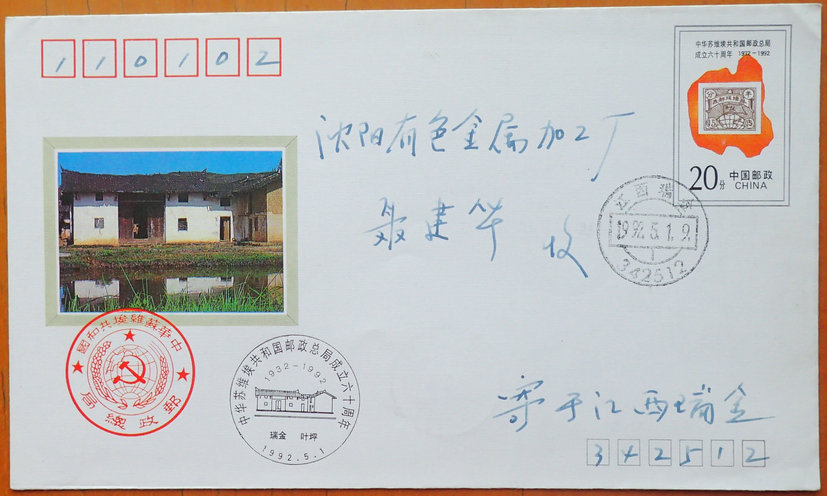 110102
中华苏维埃共和国邮政总局
成立六十周年 1932-1992
20分 中国邮政
CHINA
沈阳有色金属加工厂
聂建华 收
江西瑞金
1992.5.1.9
1
342512
中華蘇維埃共和國
郵政總局
中华苏维埃共和国邮政总局成立六十周年
1932-1992
瑞金 叶坪
1992.5.1
寄于江西瑞金
342512